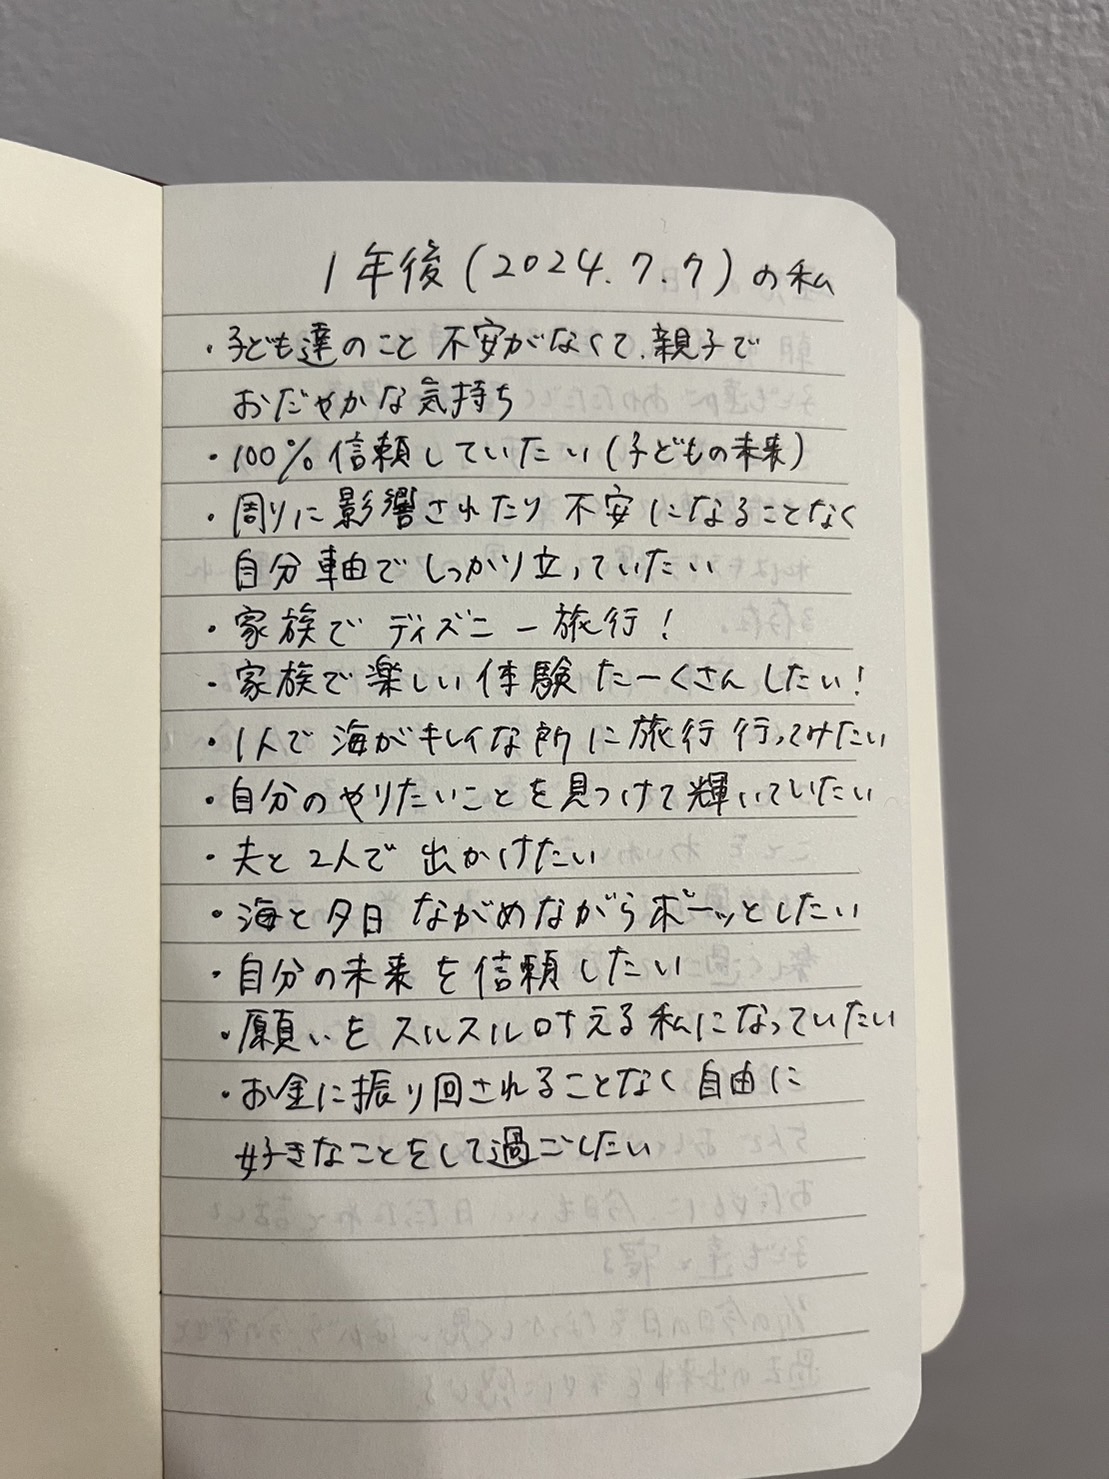 1年後(2024.7.7)の私
・子ども達のこと 不安がなくて、親子で
おだやかな気持ち
・100%信頼していたい(子どもの未来)
・周りに影響されたり 不安になることなく
自分軸でしっかり立っていたい
・家族で ディズニー旅行!
・家族で楽しい体験 たーくさんしたい!
・1人で 海がキレイな所に旅行 行ってみたい
・自分のやりたいことを見つけて輝いていたい
・夫と 2人で 出かけたい
・海と夕日 ながめながらボーッとしたい
・自分の未来を信頼したい
・願いを スルスル叶える私になっていたい
・お金に振り回されることなく自由に
好きなことをして過ごしたい